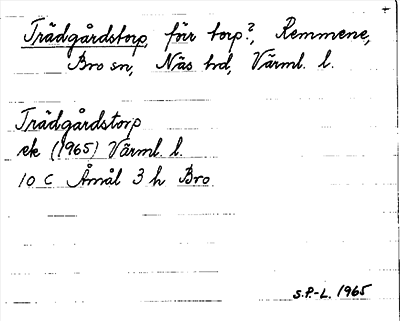 Trädgårdstorp, förr torp?, Remmene,
Bro sn, Näs hd, Värml. l.
Trädgårdstorp
ek (1965) Värml. l.
10 C Åmål 3 h Bro
S.P.-L. 1965